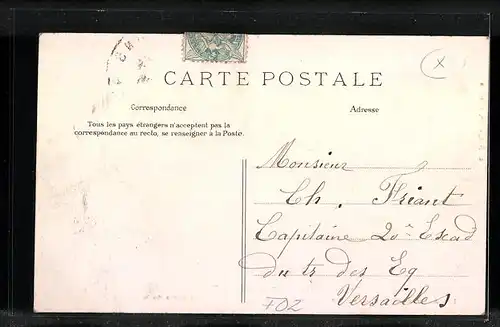 CARTE POSTALE
Correspondance
Adresse
Tous les pays étrangers n'acceptent pas la
correspondance au recto, se renseigner à la Poste.
Monsieur
Ch. Friant
Capitaine 20e Escad
du tr des Eq
Versailles
F02